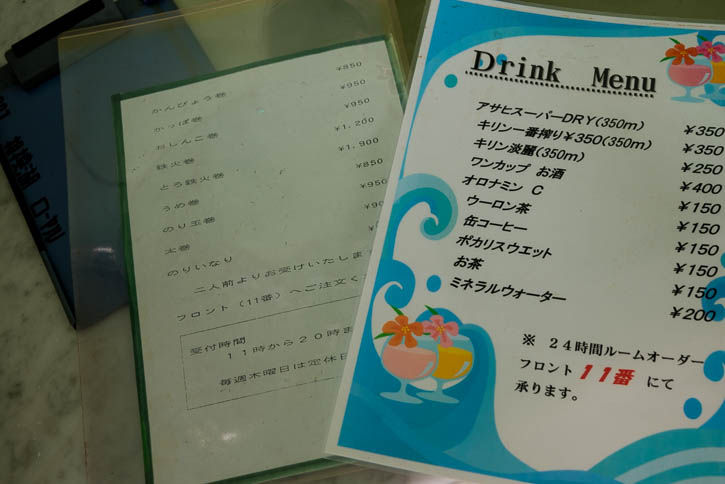 かんぴょう巻 ¥850
かっぱ巻 ¥950
おしんこ巻 ¥950
鉄火巻 ¥1,200
とろ鉄火巻 ¥1,900
うめ巻 ¥850
のり玉巻 ¥950
太巻
のりいなり
二人前よりお受けいたしま
フロント(11番)へご注文く
受付時間
11時から20時ま
毎週木曜日は定休日
Drink Menu
アサヒスーパーDRY(350m) ¥350
キリン一番搾り¥350(350m) ¥350
キリン淡麗(350m) ¥250
ワンカップ お酒 ¥400
オロナミン C ¥150
ウーロン茶 ¥150
缶コーヒー ¥150
ポカリスウエット ¥150
お茶 ¥150
ミネラルウォーター ¥200
※ 24時間ルームオーダー
フロント 11番 にて
承ります。